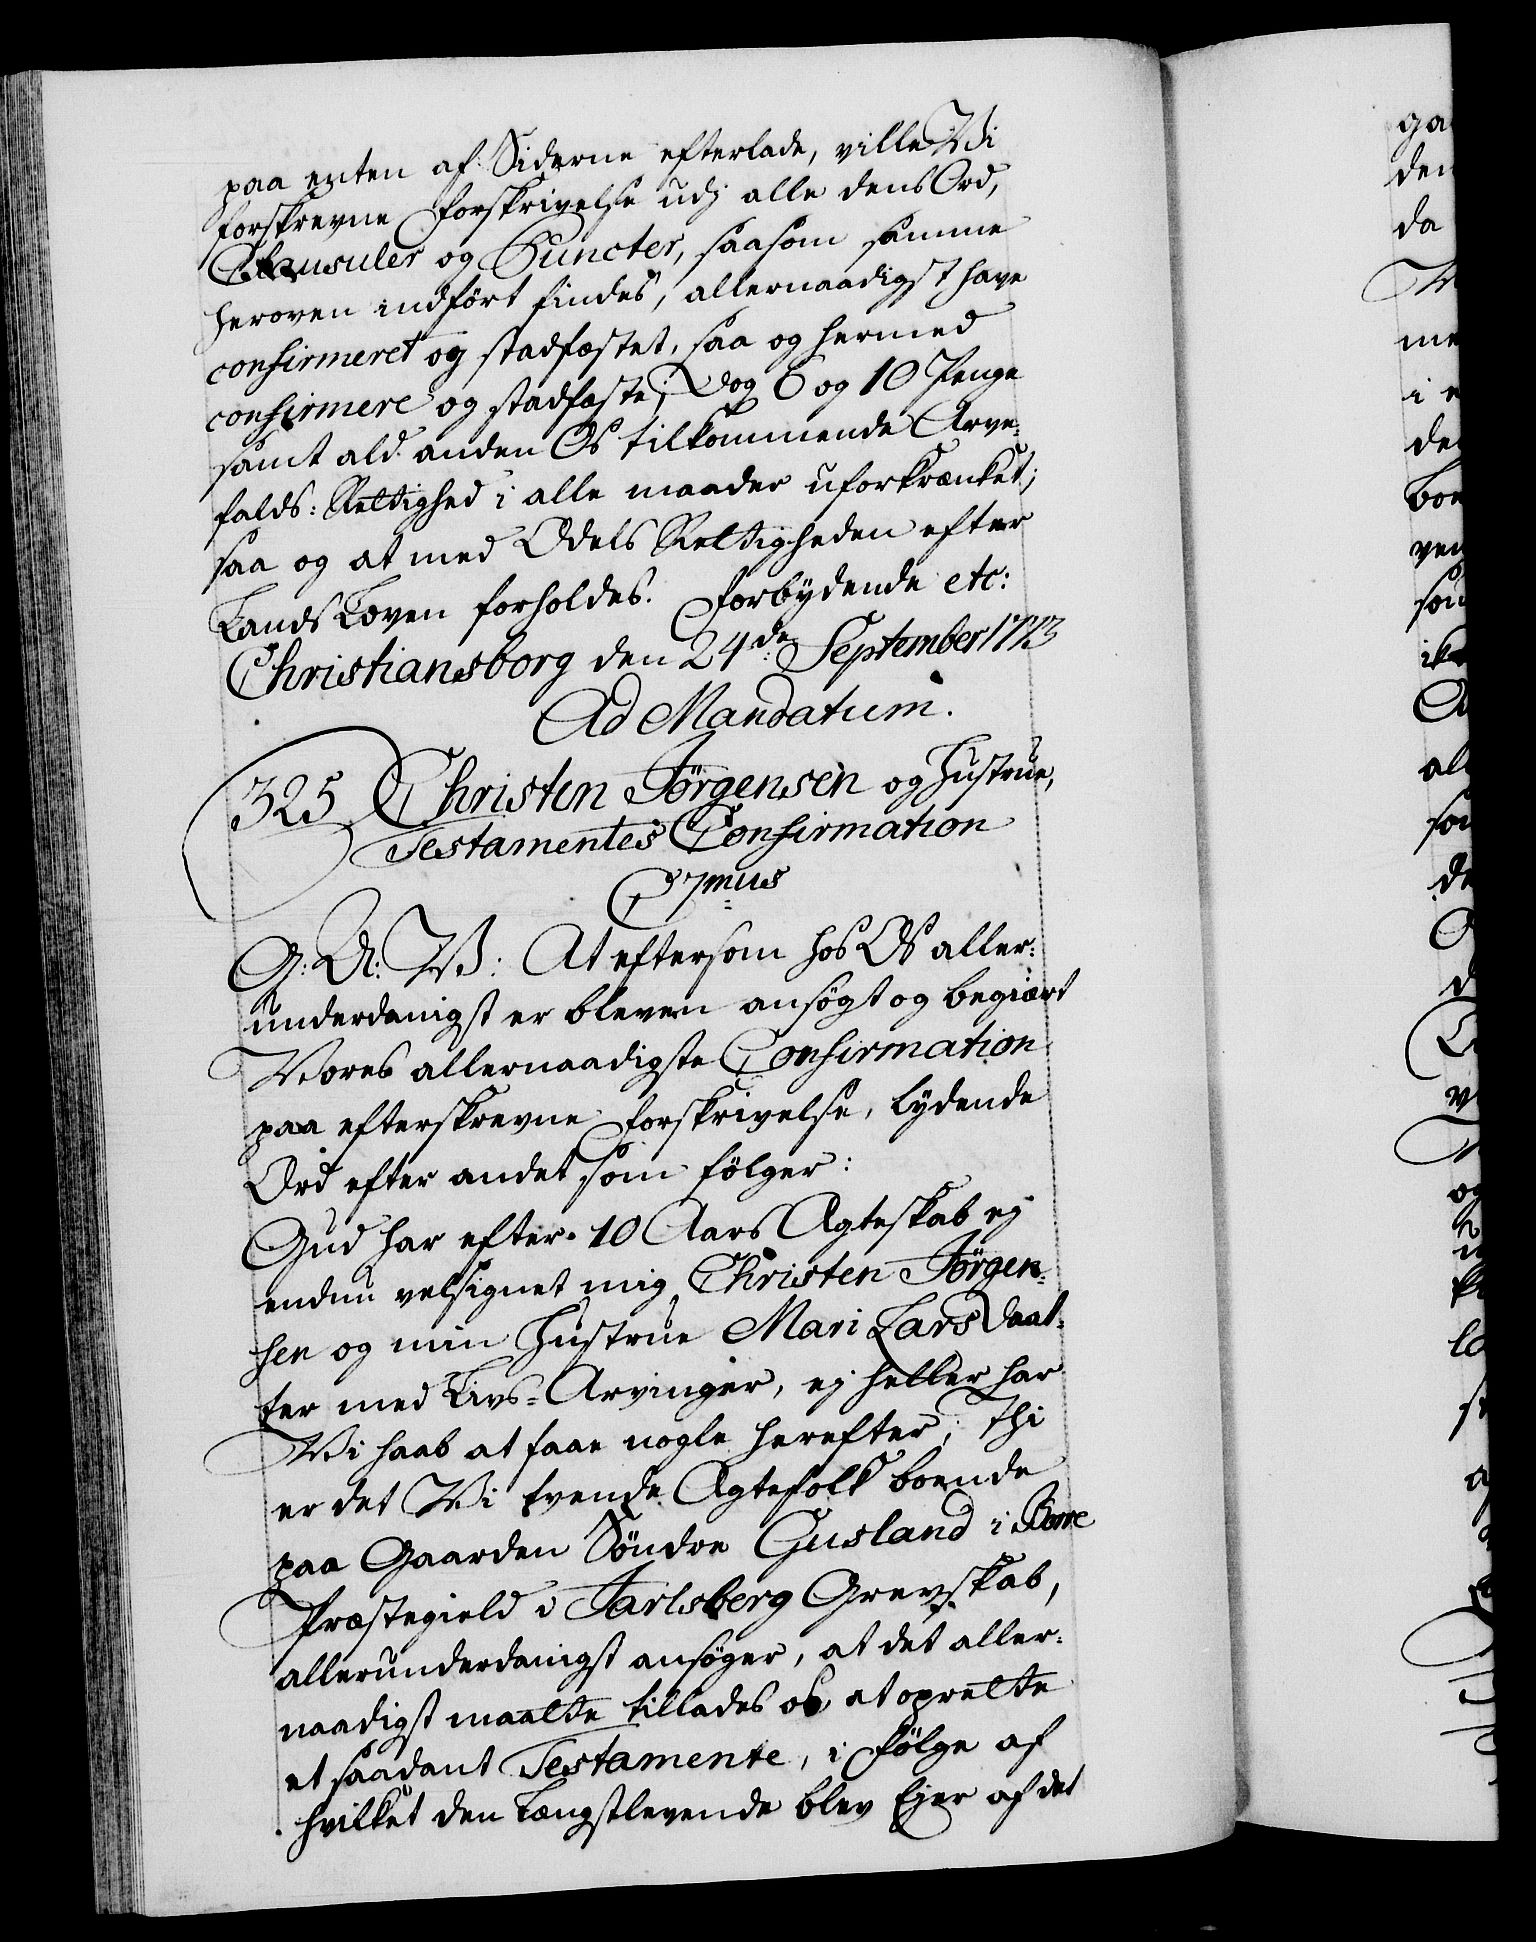 paa enten af Siderne efterlade, ville Vi
forskrevne Forskrivelse udj alle dens Ord,
Clausuler og Puncter, saasom samme
heroven indført findes, allernaadigst have
confirmeret og stadfæstet, saa og hermed
confirmere og stadfæste; Dog 6 og 10 Penge
samt ald anden Os tilkommende Arve-
falds: Rettighed i alle maader uforkrænket;
saa og at med Odels Rettigheden efter
Lands Loven forholdes. Forbydende etc:
Christiansborg den 24de September 1773
Ad Mandatum.
325 Christen Jørgensen og Hustrue,
Testamentes Confirmation
C 7mus
G: A: V: At eftersom hos Os aller:
underdanigst er bleven ansøgt og begiært
Vores allernaadigste Confirmation
paa efterskrevne Forskrivelse, lydende
Ord efter andet som følger:
Gud har efter 10 Aars Ægteskab ej
endnu velsignet mig Christen Jørgen-
sen og min Hustrue Mari Lars Daat-
ter med Livs-Arvinger, ej heller har
Vi haab at faae nogle herefter; Thi
er det Vi tvende Ægtefolk boende
paa Gaarden Søndre Gusland i Borre
Præstegield i Jarlsberg Grevskab,
allerunderdanigst ansøger, at det aller-
naadigst maatte tillades os at oprette
et saadant Testamente, i følge af
hvilket den Længstlevende blev Ejer af det